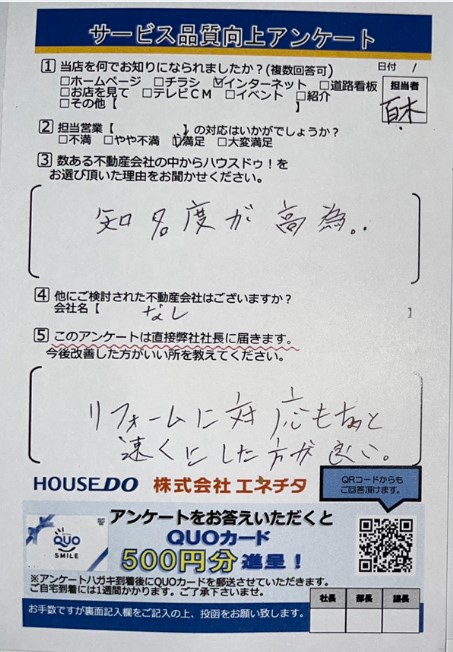 サービス品質向上アンケート
1 当店を何でお知りになられましたか?(複数回答可)
日付 /
□ホームページ □チラシ ☑インターネット □道路看板
□お店を見て □テレビCM □イベント □紹介
□その他【 】
担当者
百木
2 担当営業【 】の対応はいかがでしょうか?
□不満 □やや不満 ☑満足 □大変満足
3 数ある不動産会社の中からハウスドゥ!を
お選び頂いた理由をお聞かせください。
知名度が高為。
4 他にご検討された不動産会社はございますか?
会社名【 なし 】
5 このアンケートは直接弊社社長に届きます。
今後改善した方がいい所を教えてください。
リフォームに対応もあと
速くにした方が良い。
HOUSE DO 株式会社 エネチタ
QRコードからも
ご回答頂けます。
QUO
SMILE
アンケートをお答えいただくと
QUOカード
500円分 進呈!
※アンケートハガキ到着後にQUOカードを郵送させていただきます。
ご自宅到着には1週間かかります。ご了承下さいませ。
お手数ですが裏面記入欄をご記入の上、投函をお願い致します。
社長 部長 課長